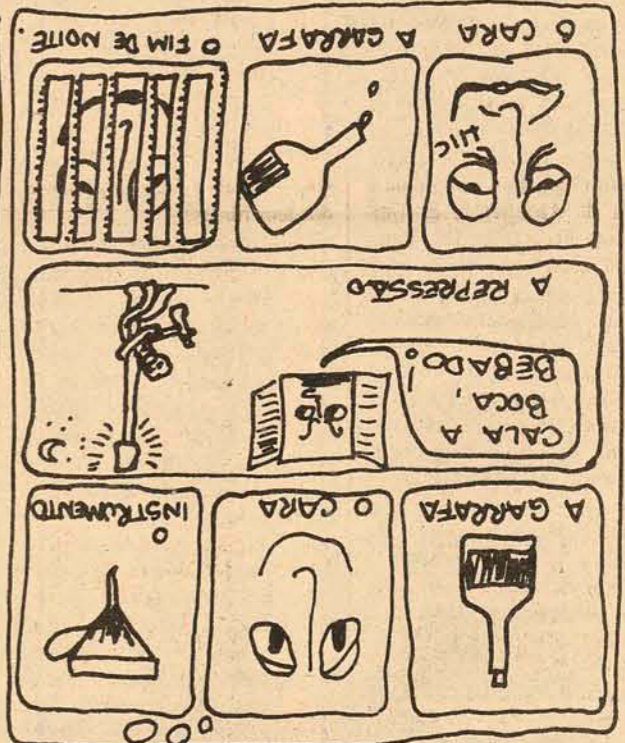 A GARRAFA
O CARA
O
INSTRUMENTO
CALA A
BOCA,
BEBADO!
A REPRESSÃO
HIC
O CARA
A GARRAFA
O FIM DE NOITE